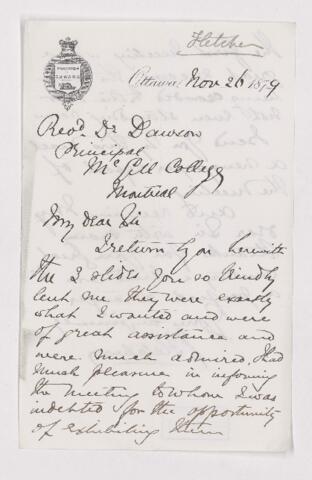 Fletcher
Ottawa Nov 26 1879
Revd. Dr Dawson
Principal
McGill College
Montreal
My Dear Sir
I return you herewith
the 2 slides you so kindly
lent me they were exactly
what I wanted and were
of great assistance and
were much admired. I had
much pleasure in informing
the meeting to whom I was
indebted for the opportunity
of exhibiting them